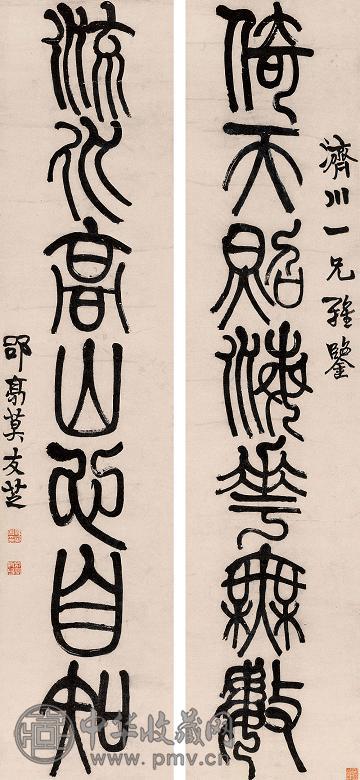 濟川一兄雅鑒
倚天照海花無數
流水高山心自知
郘亭莫友芝
中华收藏网
www.pmv.cn